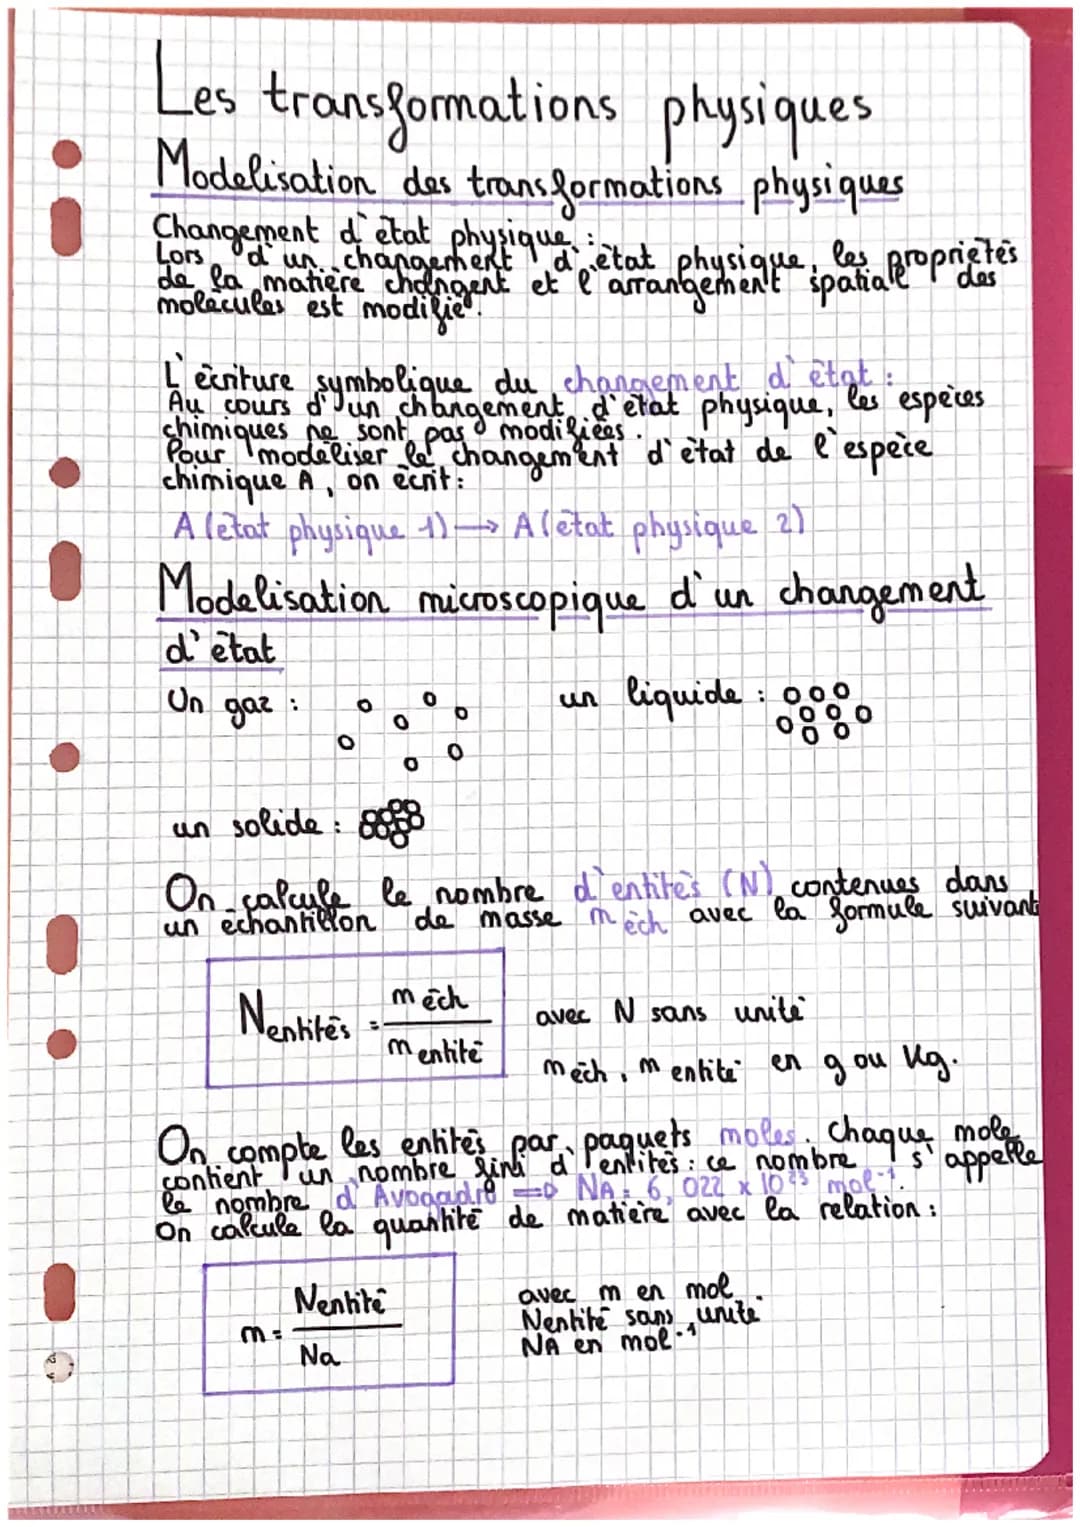 Les transformations physiques
Modelisation des transformations physiques
Changement d'état physique :
Lors d'un changement d'état physique, les propriétés
de la matière changent et l'arrangement spatiale des
molécules est modifié.
L'écriture symbolique du changement d'état :
Au cours d'un changement d'état physique, les espèces
chimiques ne sont pas modifiées.
Pour modéliser le changement d'état de l'espèce
chimique A, on écrit :
A (état physique 1) → A (état physique 2)
Modelisation microscopique d'un changement
d'état
Un gaz :
un liquide :
un solide :
On calcule le nombre d'entités (N) contenues dans
un échantillon de masse m éch avec la formule suivant
Nentités = m éch / m entité
avec N sans unité
m éch, m entité en g ou kg.
On compte les entités par paquets moles. Chaque mole
contient un nombre fini d'entités : ce nombre s'appelle
le nombre d'Avogadro => NA = 6,022 x 10²³ mol⁻¹.
On calcule la quantité de matière avec la relation :
m = Nentité / Na
avec m en mol
Nentité sans unité
NA en mol⁻¹